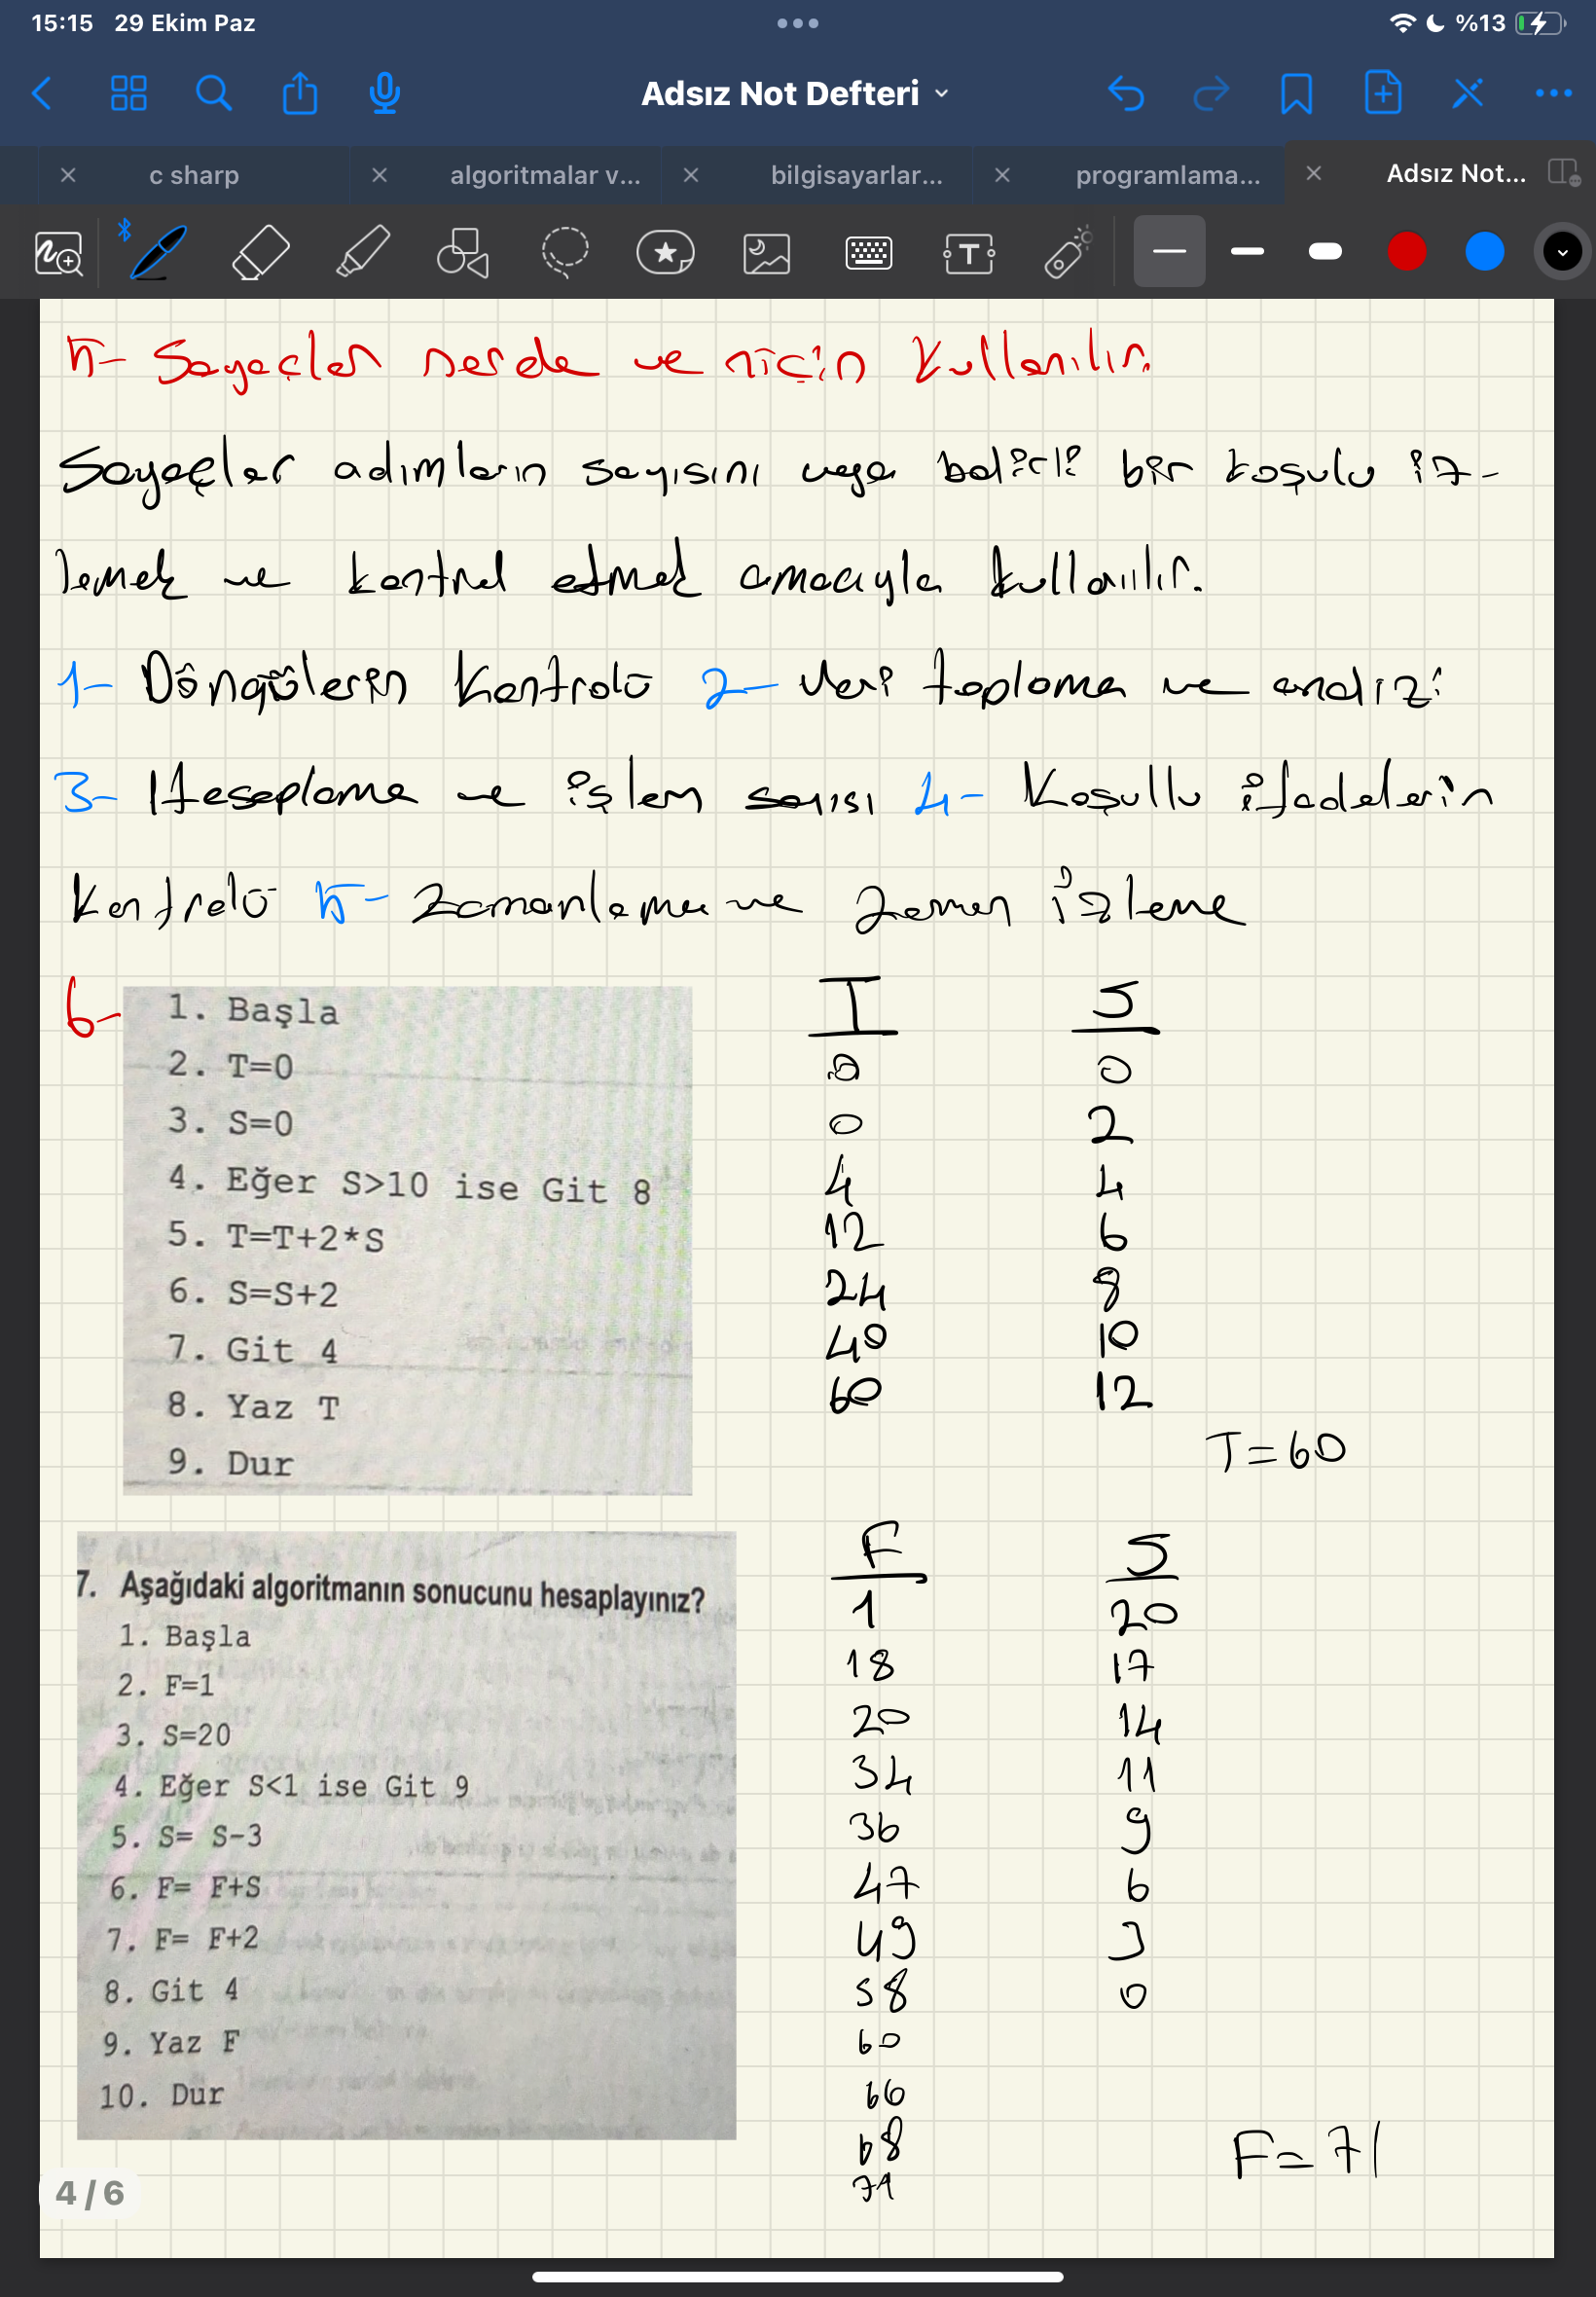 15:15 29 Ekim Paz %13
Adsız Not Defteri
c sharp algoritmalar v... bilgisayarlar... programlama... Adsız Not...
5- Sayaçlar nerde ve niçin kullanılır.
Sayaçlar adımların sayısını veya belirli bir koşulu iz-
lemek ve kontrol etmek amacıyla kullanılır.
1- Döngülerin kontrolü 2- Veri toplama ve analizi
3- Hesaplama ve işlem sayısı 4- Koşullu ifadelerin
kontrolü 5- Zamanlama ve zaman izleme
6-
1. Başla
2. T=0
3. S=0
4. Eğer S>10 ise Git 8
5. T=T+2*S
6. S=S+2
7. Git 4
8. Yaz T
9. Dur
T S
0 0
0 2
4 4
12 6
24 8
40 10
60 12
T=60
7. Aşağıdaki algoritmanın sonucunu hesaplayınız?
1. Başla
2. F=1
3. S=20
4. Eğer S<1 ise Git 9
5. S= S-3
6. F= F+S
7. F= F+2
8. Git 4
9. Yaz F
10. Dur
F S
1 20
18 17
20 14
34 11
36 9
47 6
49 3
58 0
60
66
68
71
F=71
4/6